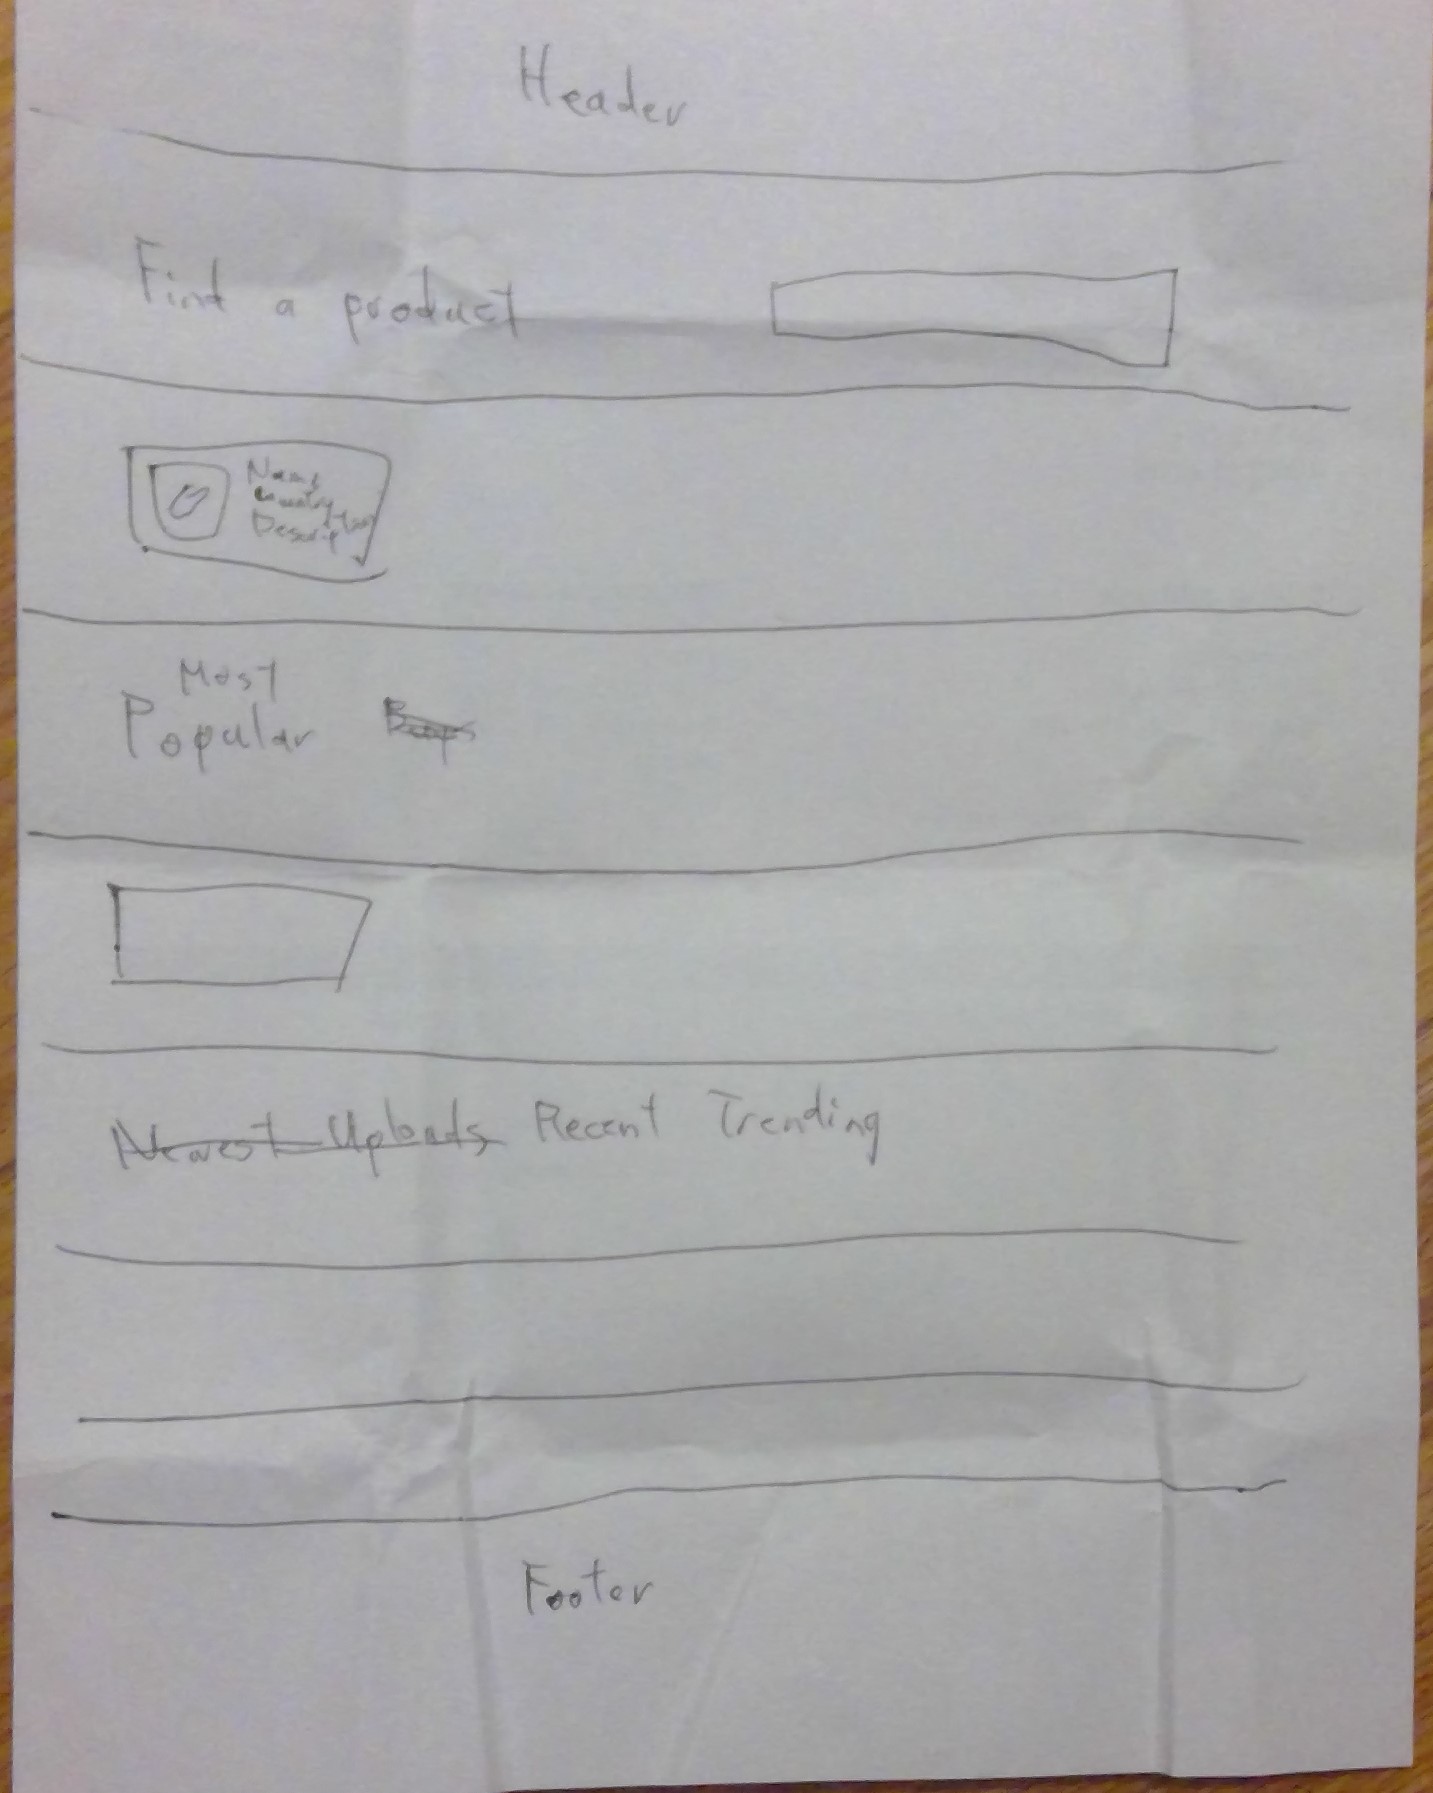 Header
Find a product
Name
Country
Description
Most
Popular
Newest Uploads Recent Trending
Footer